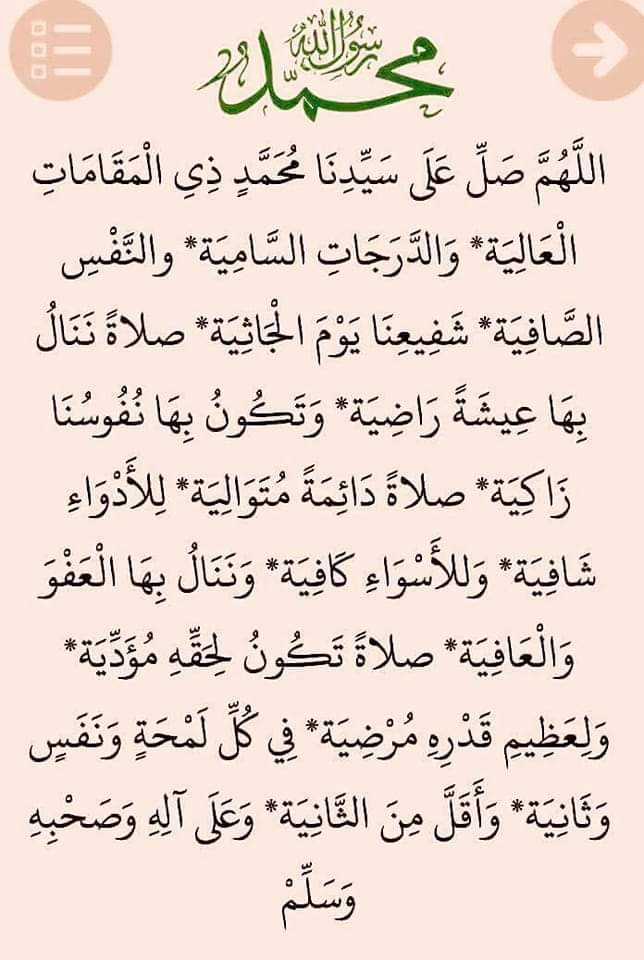 محمد رسول الله
اللَّهُمَّ صَلِّ عَلَى سَيِّدِنَا مُحَمَّدٍ ذِي الْمَقَامَاتِ
الْعَالِيَة* وَالدَّرَجَاتِ السَّامِيَة* والنَّفْسِ
الصَّافِيَة* شَفِيعِنَا يَوْمَ الْجَاثِيَة* صلاةً نَنَالُ
بِهَا عِيشَةً رَاضِيَة* وَتَكُونُ بِهَا نُفُوسُنَا
زَاكِيَة* صلاةً دَائِمَةً مُتَوَالِيَة* لِلأَدْوَاءِ
شَافِيَة* وَللأَسْوَاءِ كَافِيَة* وَنَنَالُ بِهَا الْعَفْوَ
وَالْعَافِيَة* صلاةً تَكُونُ لِحَقِّهِ مُؤَدِّيَة*
وَلِعَظِيمِ قَدْرِهِ مُرْضِيَة* فِي كُلِّ لَمْحَةٍ وَنَفَسٍ
وَثَانِيَة* وَأَقَلَّ مِنَ الثَّانِيَة* وَعَلَى آلِهِ وَصَحْبِهِ
وَسَلِّمْ